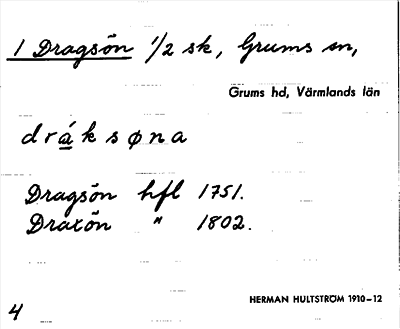 1 Dragsön 1/2 sk, Grums sn,
Grums hd, Värmlands län
dráksøna
Dragsön hfl 1751.
Draxön " 1802.
HERMAN HULTSTRÖM 1910–12
4